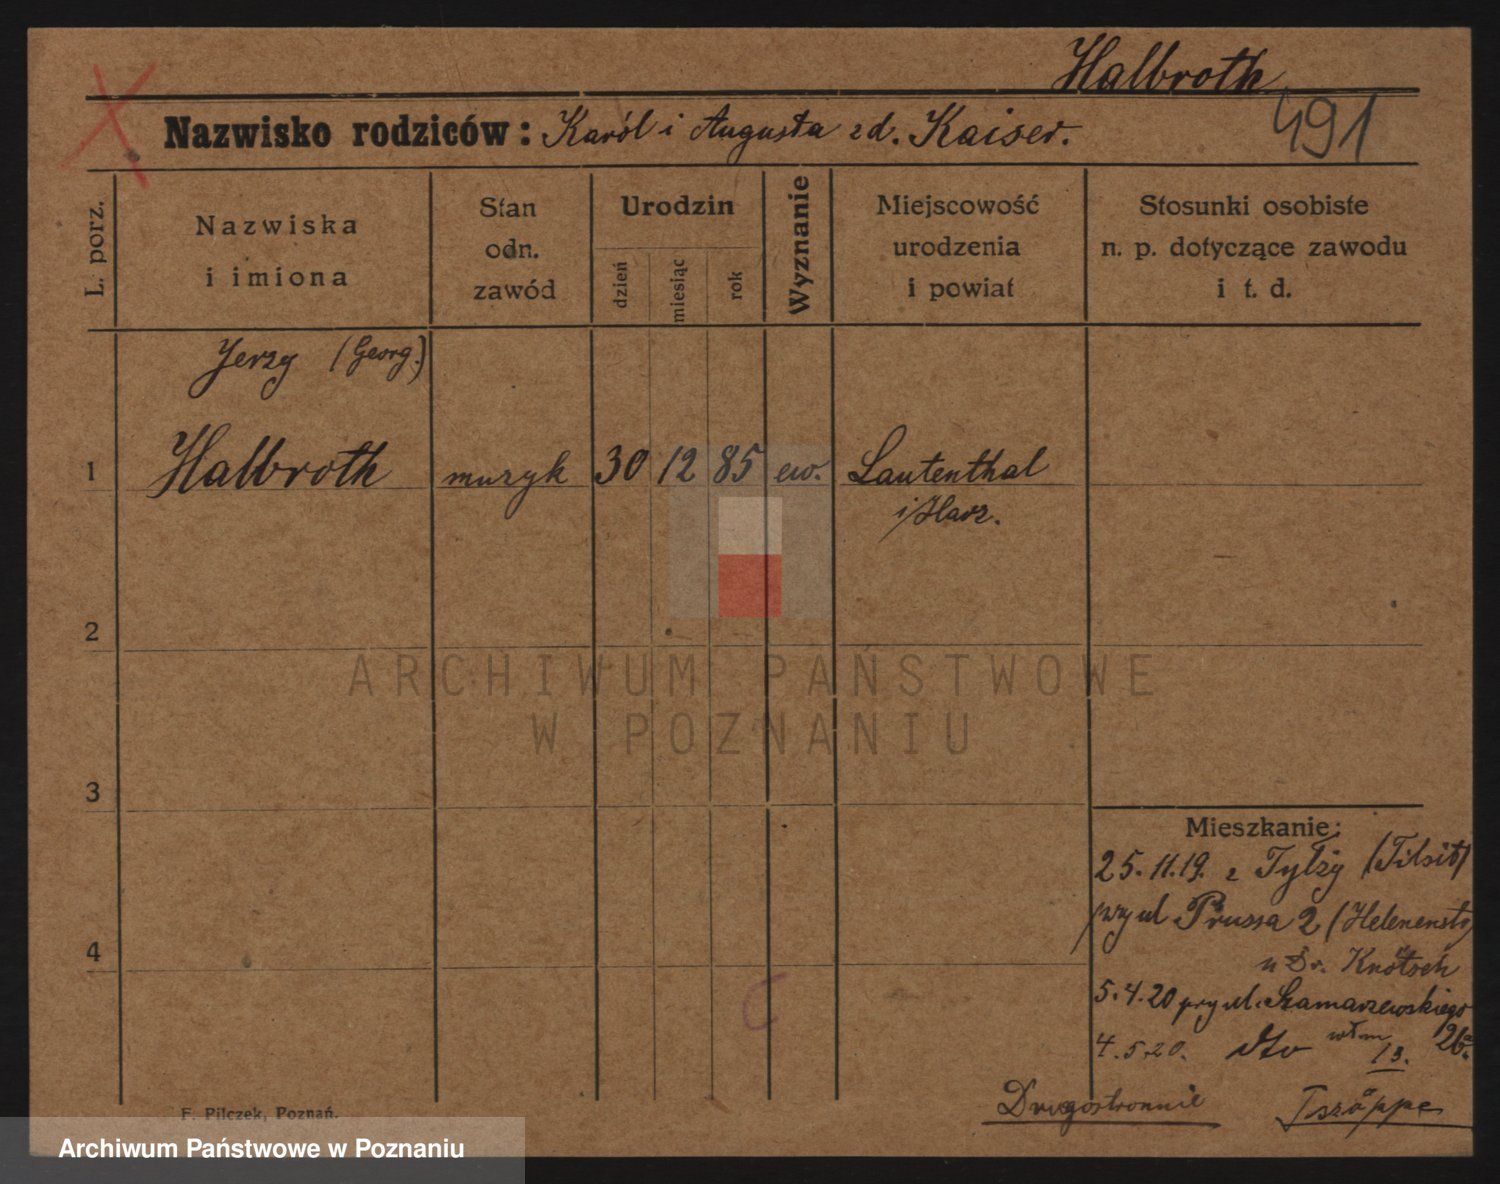 Halbroth
491
Nazwisko rodziców: Karól i Augusta zd. Kaiser.
L. porz.
Nazwiska
i imiona
Stan
odn.
zawód
Urodzin
dzień
miesiąc
rok
Wyznanie
Miejscowość
urodzenia
i powiat
Stosunki osobiste
n. p. dotyczące zawodu
i t. d.
Jerzy (Georg.)
1 Halbroth muzyk 30 12 85 ew. Lautenthal
i/Harz.
2
ARCHIWUM PAŃSTWOWE
W POZNANIU
3
Mieszkanie:
25.11.19. z Tylży (Tilsit)
przy ul Prussa 2 (Helenenstr
u Dr. Knötsch
4
5.4.20 przy ul. Szamarzewskiego
26a.
4.5.20. dto włm 13.
Drugostronnie Tszöppe
F. Pilczek, Poznań.
Archiwum Państwowe w Poznaniu